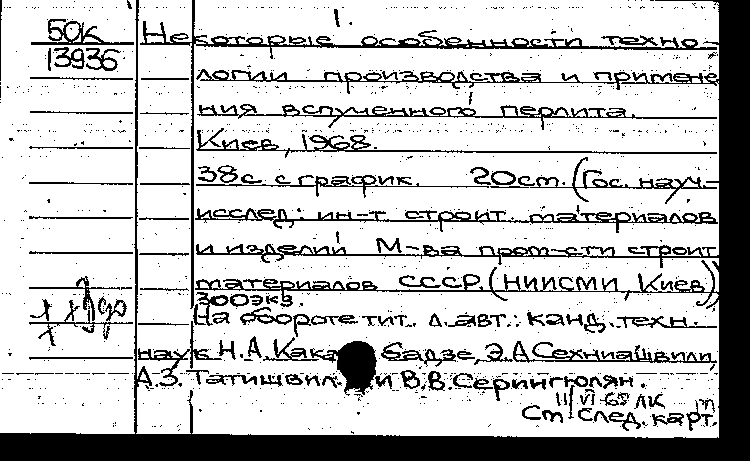 1.
50К Некоторые особенности техно-
13936 логии производства и примене
ния вспученного перлита.
Киев, 1968.
38с. с график. 20см. (Гос. науч.-
исслед. ин-т строит. материалов
и изделий М-ва пром-сти строит
материалов СССР. (НИИСМИ, Киев))
300экз.
На обороте тит. л. авт.: канд. техн.
наук Н.А. Кака бадзе, Э.А Сехниашвили,
А.З. Татишвил и В.В. Серингюлян.
11/VI-69 ЛК
См след. карт.